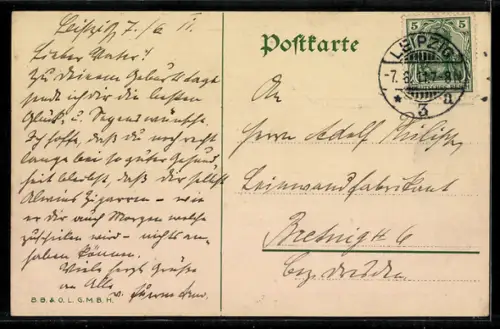 Leipzig, 7./6 11.
Lieber Vater!
Zu deinem Geburtstage
sende ich dir die besten
Glück- u. Segenswünsche.
Ich hoffe, daß du noch recht
lange bei so guter Gesund
heit bleibst, daß dir selbst
Alwins Zigarren – wenn
er dir auch Morgen welche
zuschicken wird – nichts an-
haben können.
Viele herzl. Grüße
an Alle
v.
B.B.& O.L.G.M.B.H.
Postkarte
5 5
LEIPZIG
-7.6.11.7-8N
* 3 a
An
Herrn Adolf
Leinwandfabrikant
Bretnig № 6
Bez. Dresden